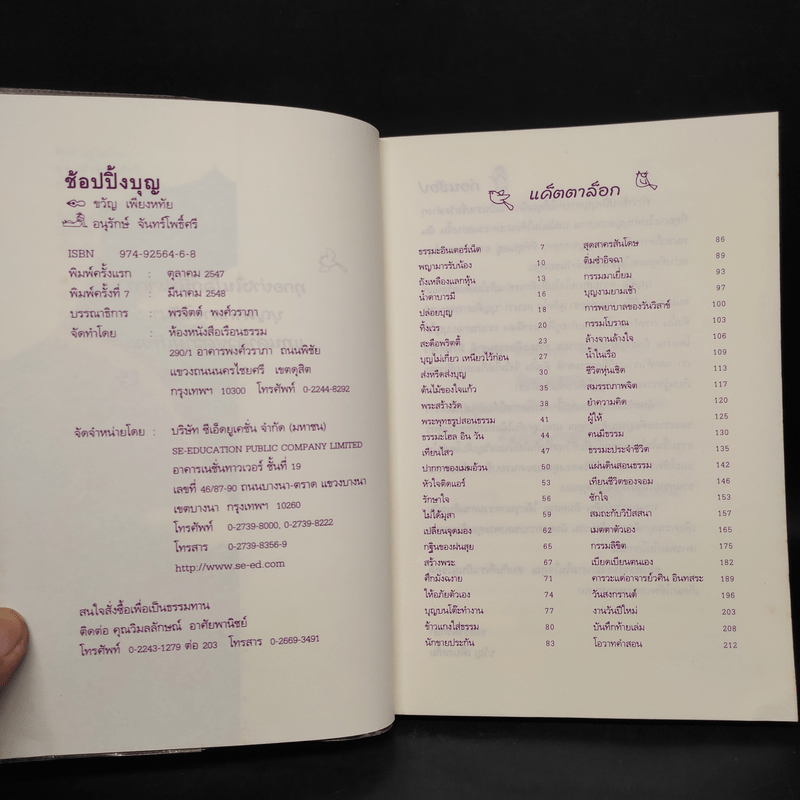 ช้อปปิ้งบุญ
ขวัญ เพียงหทัย
อนุรักษ์ จันทร์โพธิ์ศรี
ISBN 974-92564-6-8
พิมพ์ครั้งแรก : ตุลาคม 2547
พิมพ์ครั้งที่ 7 : มีนาคม 2548
บรรณาธิการ : พรจิตต์ พงศ์วราภา
จัดทำโดย : ห้องหนังสือเรือนธรรม
290/1 อาคารพงศ์วราภา ถนนพิชัย
แขวงถนนนครไชยศรี เขตดุสิต
กรุงเทพฯ 10300 โทรศัพท์ 0-2244-8292
จัดจำหน่ายโดย : บริษัท ซีเอ็ดยูเคชั่น จำกัด (มหาชน)
SE-EDUCATION PUBLIC COMPANY LIMITED
อาคารเนชั่นทาวเวอร์ ชั้นที่ 19
เลขที่ 46/87-90 ถนนบางนา-ตราด แขวงบางนา
เขตบางนา กรุงเทพฯ 10260
โทรศัพท์ 0-2739-8000, 0-2739-8222
โทรสาร 0-2739-8356-9
http://www.se-ed.com
สนใจสั่งซื้อเพื่อเป็นธรรมทาน
ติดต่อ คุณวิมลลักษณ์ อาศัยพานิชย์
โทรศัพท์ 0-2243-1279 ต่อ 203 โทรสาร 0-2669-3491
แค็ตตาล็อก
ธรรมะอินเตอร์เน็ต 7
พญามารรับน้อง 10
ถังเหลืองแลกหุ้น 13
น้ำตาบารมี 16
ปล่อยบุญ 18
ทิ้งเวร 20
สะดือพริตตี้ 23
บุญไม่เกี่ยว เหนียวไว้ก่อน 27
ส่งหรีดส่งบุญ 30
ต้นไม้ของใจแก้ว 35
พระสร้างวัด 38
พระพุทธรูปสอนธรรม 41
ธรรมะโฮล อิน วัน 44
เทียนไสว 47
ปากกาของเมฆอ้วน 50
หัวใจติดแอร์ 53
รักษาใจ 56
ไม่ได้มุสา 59
เปลี่ยนจุดมอง 62
กฐินของฝนสุย 65
สร้างพระ 67
ศึกมังฉงาย 71
ให้อภัยตัวเอง 74
บุญบนโต๊ะทำงาน 77
ข้าวแกงใส่ธรรม 80
นักขายประกัน 83
สุดสาครสันโดษ 86
ดื่มซ้ำอิจฉา 89
กรรมมาเยี่ยม 93
บุญงามยามเช้า 97
การพยาบาลของวันวิสาข์ 100
กรรมโบราณ 103
ล้างจานล้างใจ 106
น้ำในเรือ 109
ชีวิตหุ่นเชิด 113
สมรรถภาพจิต 117
ย้ำความคิด 120
ผู้ให้ 125
คนมีธรรม 130
ธรรมะประจำชีวิต 135
แผ่นดินสอนธรรม 142
เทียนชีวิตของจอม 146
ซักใจ 153
สมถะกับวิปัสสนา 157
เมตตาตัวเอง 165
กรรมลิขิต 175
เบียดเบียนตนเอง 182
คารวะแด่อาจารย์วศิน อินทสระ 189
วันสงกรานต์ 196
งานวันปีใหม่ 203
บันทึกท้ายเล่ม 208
โอวาทคำสอน 212